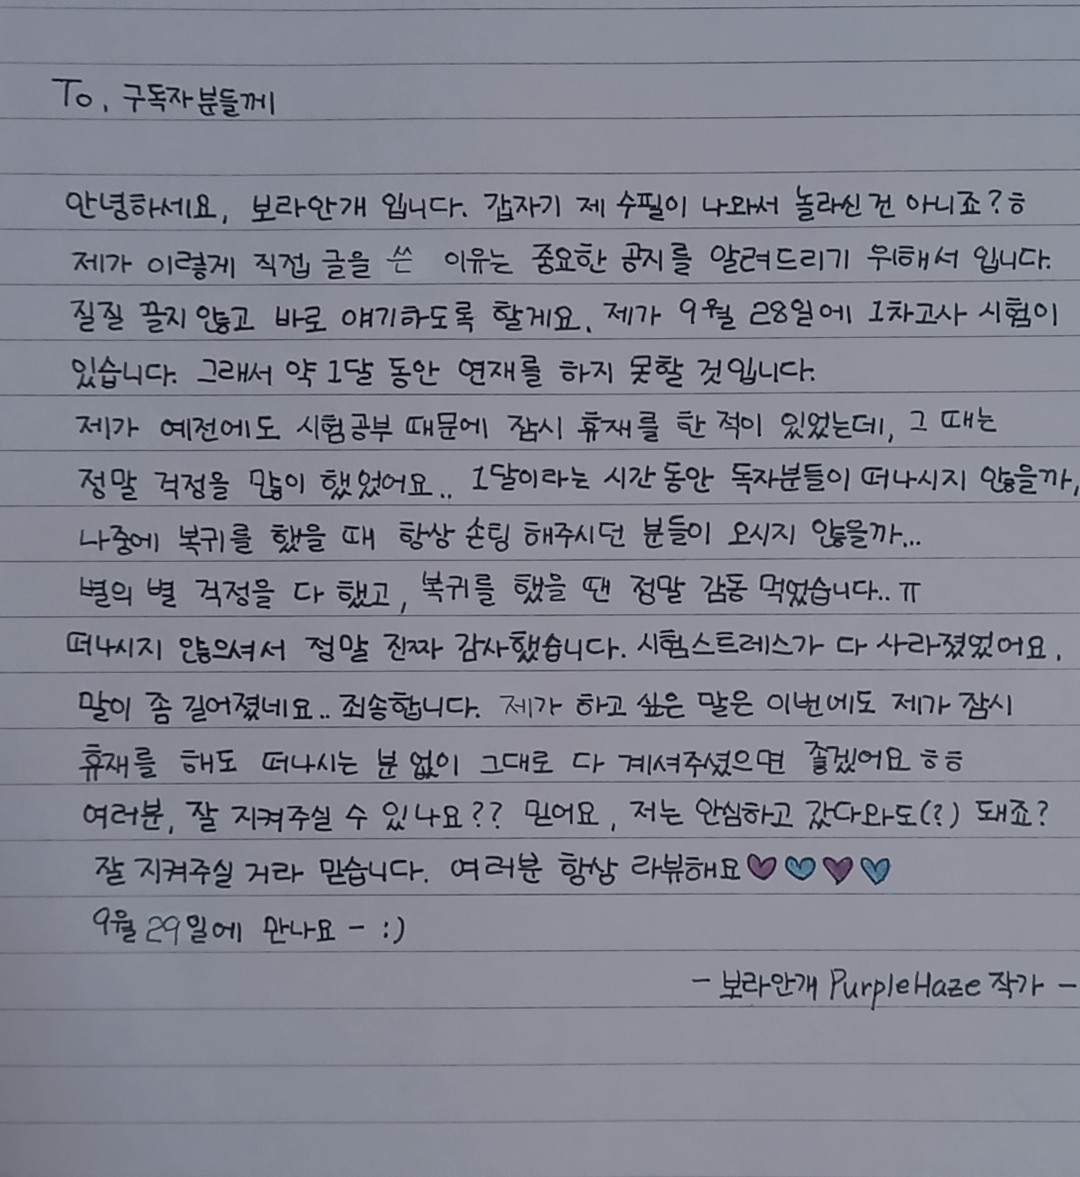 To. 구독자분들께
안녕하세요, 보라안개 입니다. 갑자기 제 수필이 나와서 놀라신 건 아니죠?ㅎ
제가 이렇게 직접 글을 쓴 이유는 중요한 공지를 알려드리기 위해서 입니다.
질질 끌지 않고 바로 얘기하도록 할게요. 제가 9월 28일에 1차고사 시험이
있습니다. 그래서 약 1달 동안 연재를 하지 못할 것입니다.
제가 예전에도 시험공부 때문에 잠시 휴재를 한 적이 있었는데, 그 때는
정말 걱정을 많이 했었어요.. 1달이라는 시간 동안 독자분들이 떠나시지 않을까,
나중에 복귀를 했을 때 항상 손팅 해주시던 분들이 오시지 않을까...
별의 별 걱정을 다 했고, 복귀를 했을 땐 정말 감동 먹었습니다.. ㅠ
떠나시지 않으셔서 정말 진짜 감사했습니다. 시험스트레스가 다 사라졌었어요.
말이 좀 길어졌네요.. 죄송합니다. 제가 하고 싶은 말은 이번에도 제가 잠시
휴재를 해도 떠나시는 분 없이 그대로 다 계셔주셨으면 좋겠어요 ㅎㅎ
여러분, 잘 지켜주실 수 있나요?? 믿어요, 저는 안심하고 갔다와도(?) 돼죠?
잘 지켜주실 거라 믿습니다. 여러분 항상 라뷰해요♥♥♥♥
9월 29일에 만나요 - :)
- 보라안개 PurpleHaze 작가 -